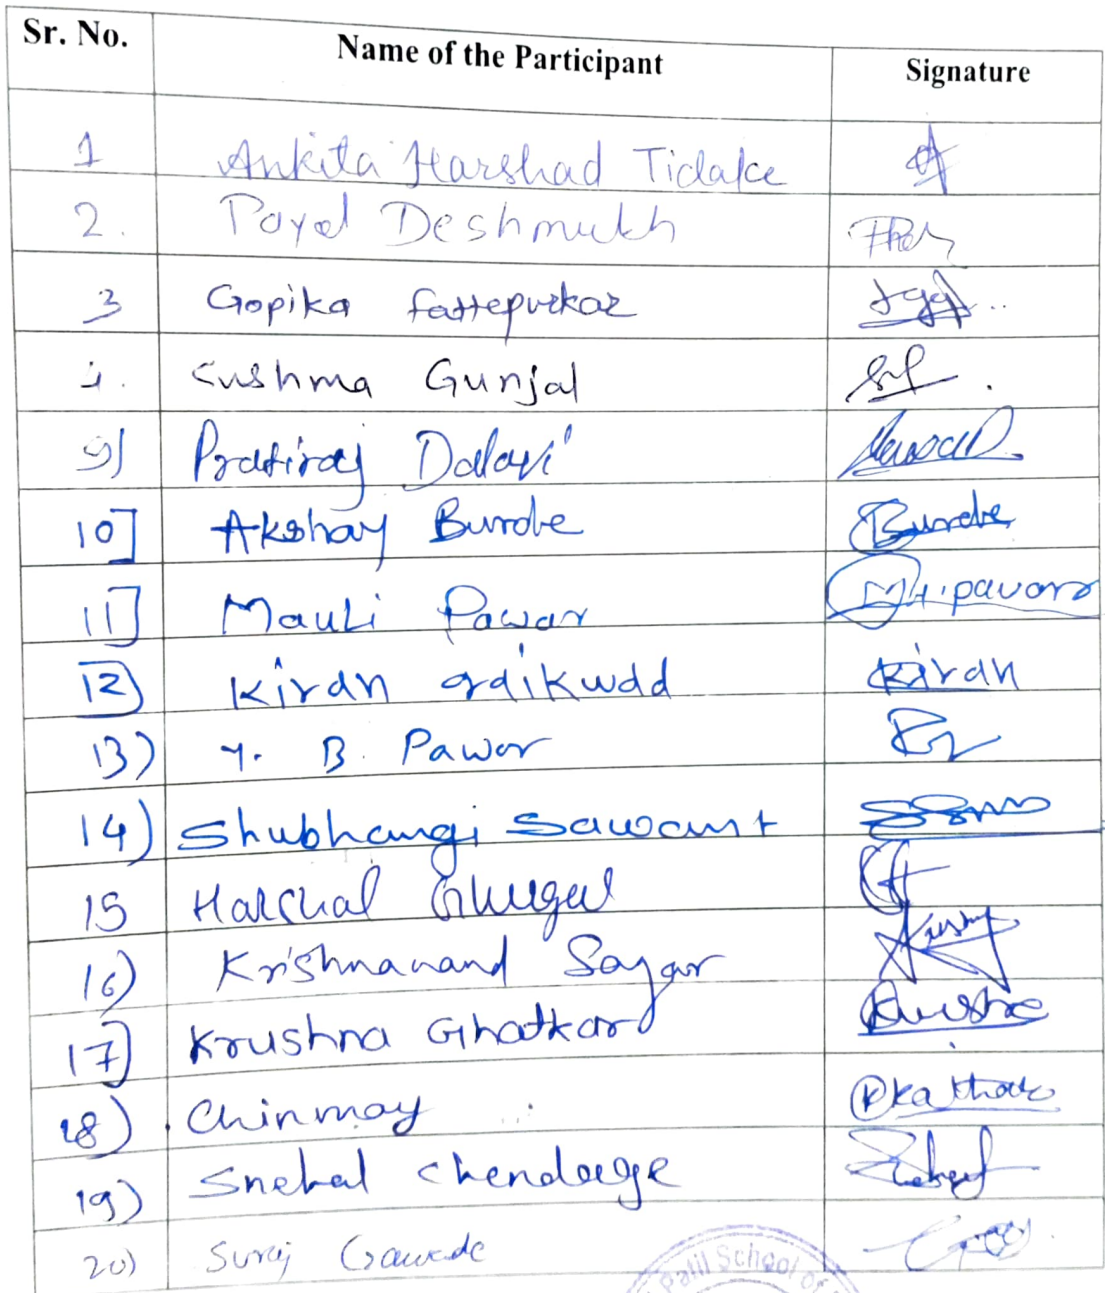 Sr. No. Name of the Participant Signature
1 Ankita Harshad Tidake
2. Payal Deshmukh
3 Gopika fattepurkar
4. Sushma Gunjal
9) Pratiraj Dalavi
10] Akshay Burde Burde
11] Mauli Pawar M.H.pavar
12) Kiran gaikwad Kiran
13) Y. B. Pawar
14) Shubhangi Sawant
15 Harshal Ghugel
16) Krishnanand Sagar
17] Krushna Ghatkar
18) Chinmay
19) Snehal Chendage
20) Suraj Gawade
Patil School of